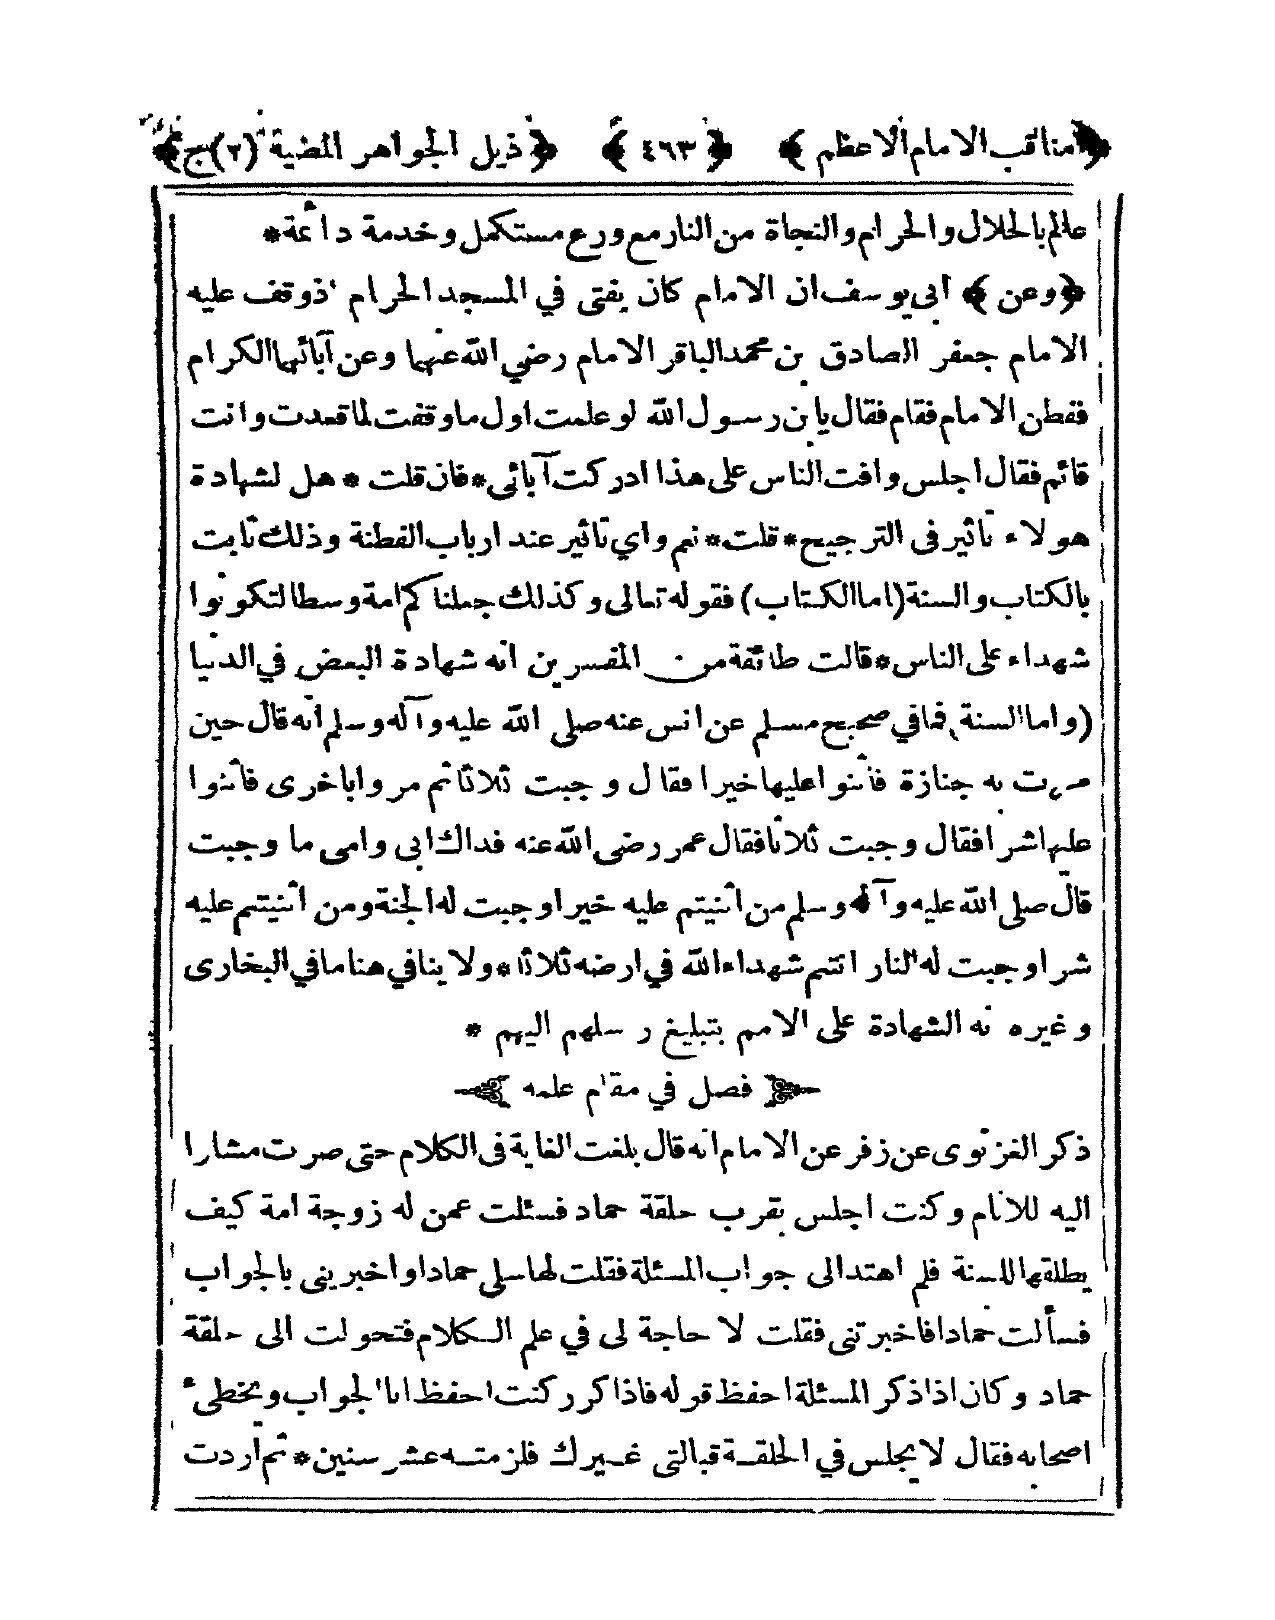 ﴿مناقب الامام الاعظم﴾ ﴿٤٦٣﴾ ﴿ذيل الجواهر المضية (٢)ج﴾
عالم بالحلال والحرام والنجاة من النار مع ورع مستكمل وخدمة دائمة *
﴿وعن﴾ ابى يوسف ان الامام كان يفتى في المسجد الحرام اذ وقف عليه
الامام جعفر الصادق بن محمد الباقر الامام رضي الله عنهما وعن آبائهما الكرام
ففطن الامام فقام فقال يا بن رسول الله لو علمت اول ما وقفت لما قعدت وانت
قائم فقال اجلس وافت الناس على هذا ادركت آبائى * فان قلت * هل لشهادة
هولاء تاثير فى الترجيح * قلت * نعم واي تاثير عند ارباب الفطنة وذلك ثابت
بالكتاب والسنة (اما الكتاب) فقوله تعالى وكذلك جعلناكم امة وسطا لتكونوا
شهداء على الناس * قالت طائفة من المفسرين انه شهادة البعض في الدنيا
(واما السنة) فما في صحيح مسلم عن انس عنه صلى الله عليه وآله وسلم انه قال حين
مرت به جنازة فأثنوا عليها خيرا فقال وجبت ثلاثا ثم مروا باخرى فأثنوا
عليها شرا فقال وجبت ثلاثا فقال عمر رضى الله عنه فداك ابى وامى ما وجبت
قال صلى الله عليه وآله وسلم من أثنيتم عليه خيرا وجبت له الجنة ومن أثنيتم عليه
شرا وجبت له النار انتم شهداء الله في ارضه ثلاثا * ولا ينافي هنا ما في البخارى
وغيره انه الشهادة على الامم بتبليغ رسلهم اليهم *
فصل في مقام علمه
ذكر الغزنوى عن زفر عن الامام انه قال بلغت الغاية فى الكلام حتى صرت مشارا
اليه للانام وكنت اجلس بقرب حلقة حماد فسئلت عمن له زوجة امة كيف
يطلقها للسنة فلم اهتد الى جواب المسئلة فقلت لها سلى حمادا واخبرينى بالجواب
فسألت حمادا فاخبرتنى فقلت لا حاجة لى في علم الكلام فتحولت الى حلقة
حماد وكان اذا ذكر المسئلة احفظ قوله فاذا كرر كنت احفظ انا الجواب ويخطىء
اصحابه فقال لا يجلس في الحلقة قبالتى غيرك فلزمته عشر سنين * ثم اردت